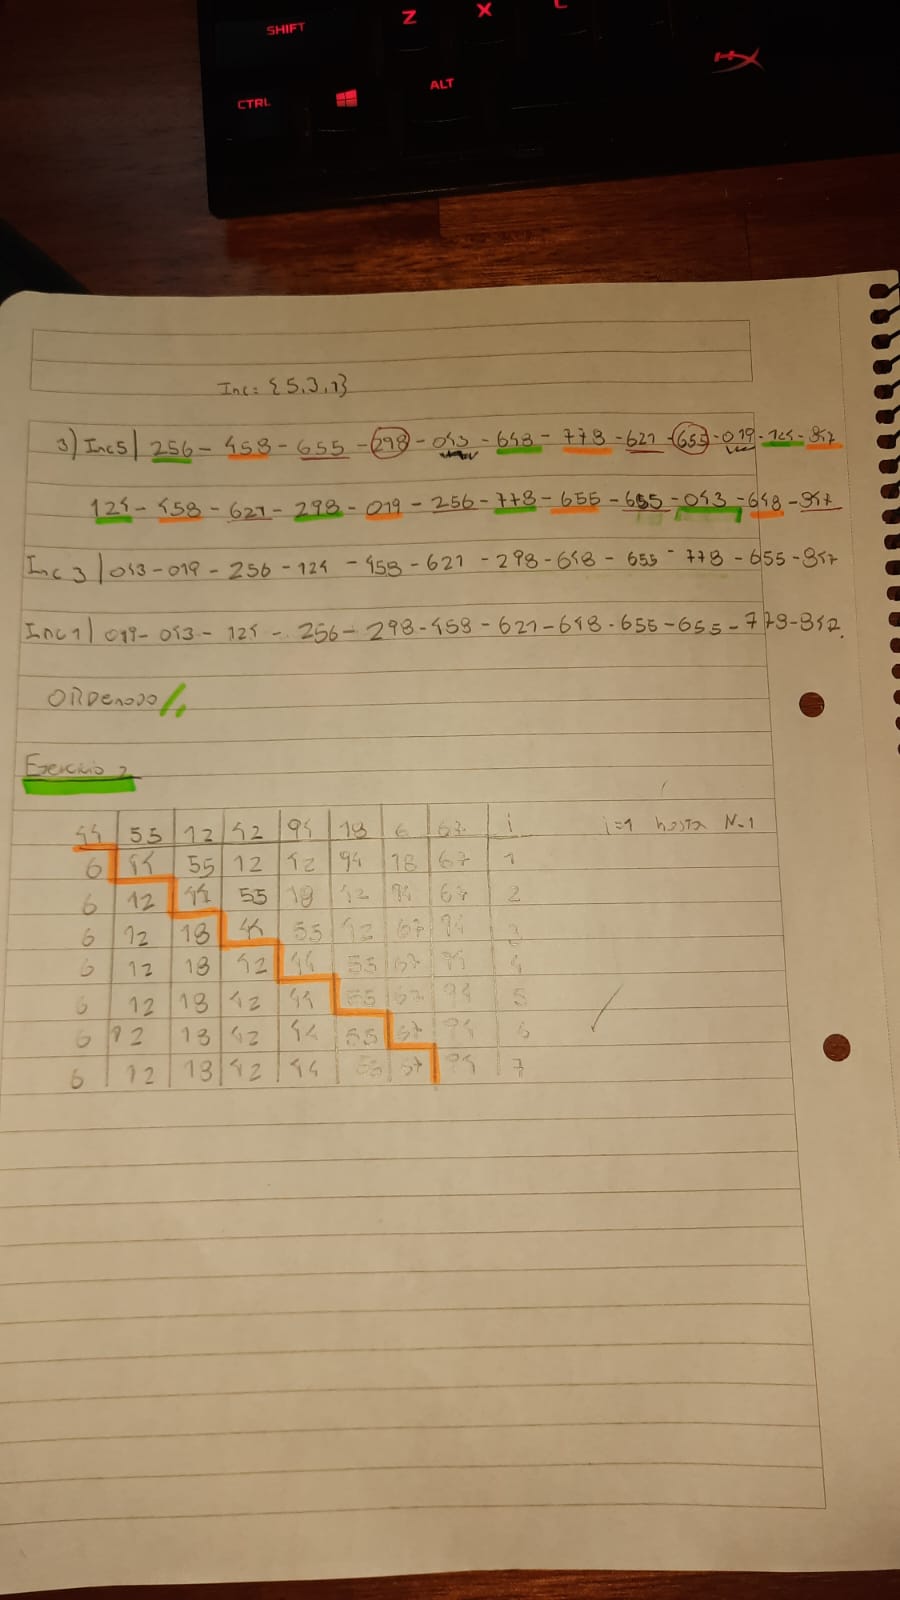 Z X
SHIFT
CTRL ALT
HX
Inc: {5,3,1}
3) Inc5 | 256 - 458 - 655 - 298 - 043 - 648 - 778 - 621 - 655 - 019 - 124 - 847
124 - 458 - 621 - 298 - 019 - 256 - 778 - 655 - 655 - 043 - 648 - 847
Inc 3 | 043 - 019 - 256 - 124 - 458 - 621 - 298 - 648 - 655 - 778 - 655 - 847
Inc 1 | 019 - 043 - 124 - 256 - 298 - 458 - 621 - 648 - 655 - 655 - 778 - 847.
ORDenado
Ejercicio 2
44 55 12 42 94 18 6 67 i i=1 hasta N-1
6 44 55 12 42 94 18 67 1
6 12 44 55 18 42 94 67 2
6 12 18 44 55 42 67 94 3
6 12 18 42 44 55 67 94 4
6 12 18 42 44 55 67 94 5
6 12 18 42 44 55 67 94 6
6 12 18 42 44 55 67 94 7